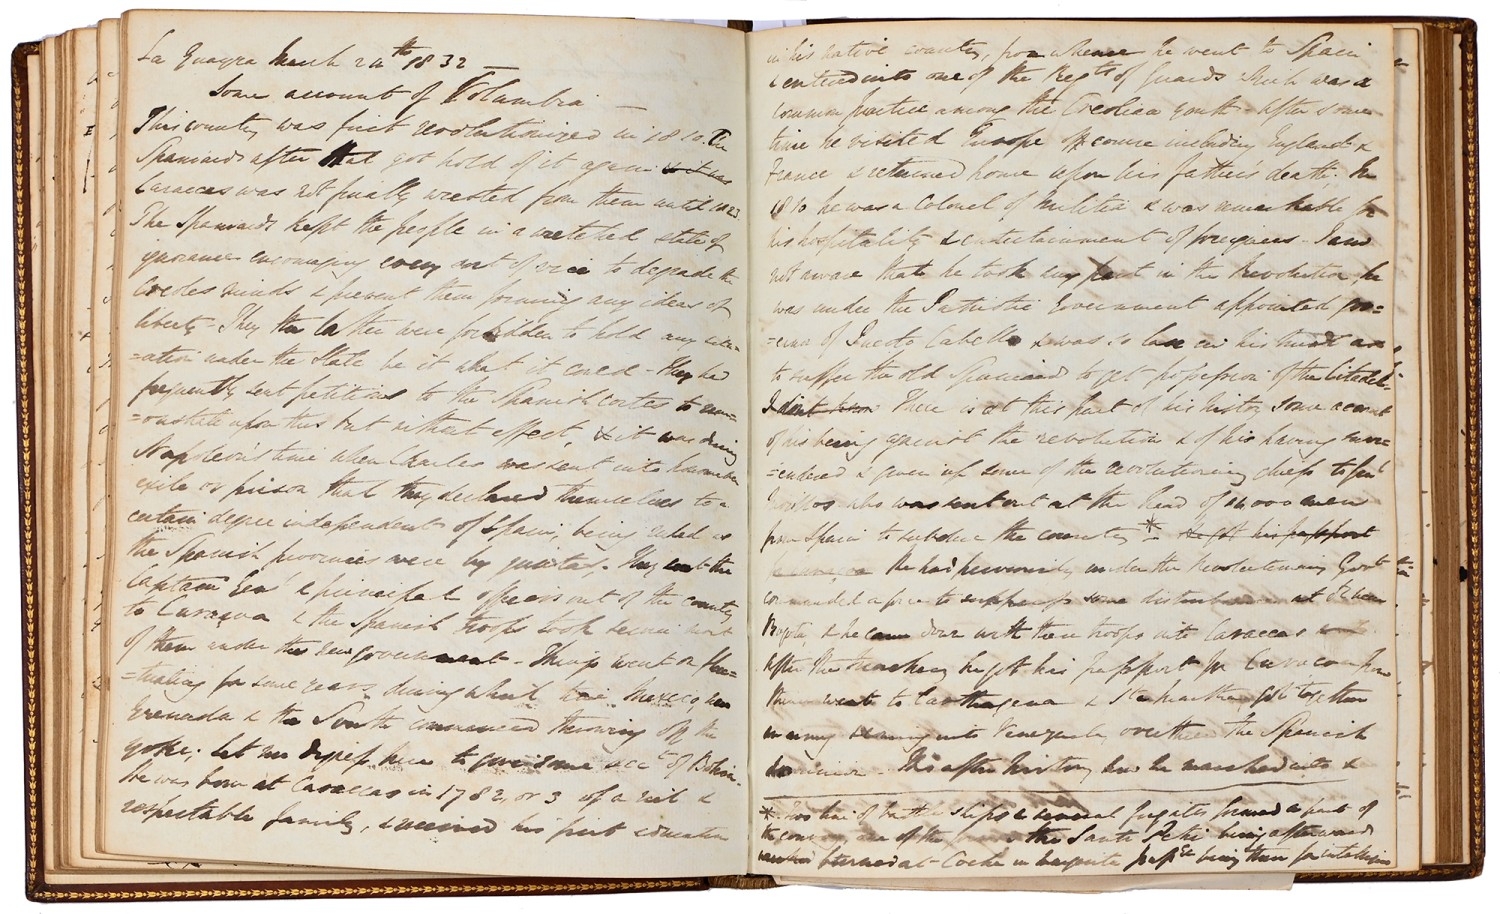 La Guayra March 24th 1832 —
Some account of Columbia —
This country was first revolutionized in 1810. The
Spaniards after that got hold of it again & it was
Caraccas was not finally wrested from them until 1823
The Spaniards kept the people in a wretched state of
ignorance encouraging every sort of vice to degrade the
Creoles minds & prevent them forming any ideas of
liberty - They the latter were forbidden to hold any
=ation under the State be it what it could - They had
frequently sent petitions to the Spanish Cortes to
upon this but without effect, & it was during
Napoleon's time when Charles was sent into
exile or prison that they declared themselves to a
certain degree independent of Spain, being ruled as
the Spanish provinces were by juntas. They sent the
Captain Genl & principal officers out of the country
to Curaçoa & the Spanish troops took service most
of them under the new government - Things went on
for some years, during which time Mexico, New
Grenada & the South commenced throwing off the
yoke; let me digress here to give some acct of Bolivar.
He was born at Caraccas in 1782, or 3 of a rich &
respectable family, & received his first education
in his native country, from whence he went to Spain
& entered into one of the Regts of Guards which was a
common practice among the Creolian youth - after some
time he visited Europe of course including England &
France & returned home upon his father's death. In
1810 he was a Colonel of Militia & was remarkable for
his hospitality & entertainment of foreigners - I am
not aware that he took any part in the Revolution, he
was under the Patriotic Government appointed gov=
=ernor of Puerto Cabello & was so in his as
to suffer the old Spaniards to get possession of the Citadel -
I dont know There is at this part of his history some account
of his being against the revolution & of his having surr=
=endered & given up some of the revolutionary chiefs to Genl
who was sent out at the head of men
from Spain to subdue the country * - He got his passport
for Curaçoa He had previously under the Revolutionary Govt
commanded a force to suppress some disturbances at
Bogota, & he came down with these troops into Caraccas
after the treachery he got his passport for Curacoa from
thence went to Carthagena & got together
an army & coming into Venezuela, overthrew the Spanish
dominion - His after history how he marched into &
* Two line of battle ships & several frigates formed a part of
the convoy, one of the the Santo being afterwards
burned at Coche in Margarita being then